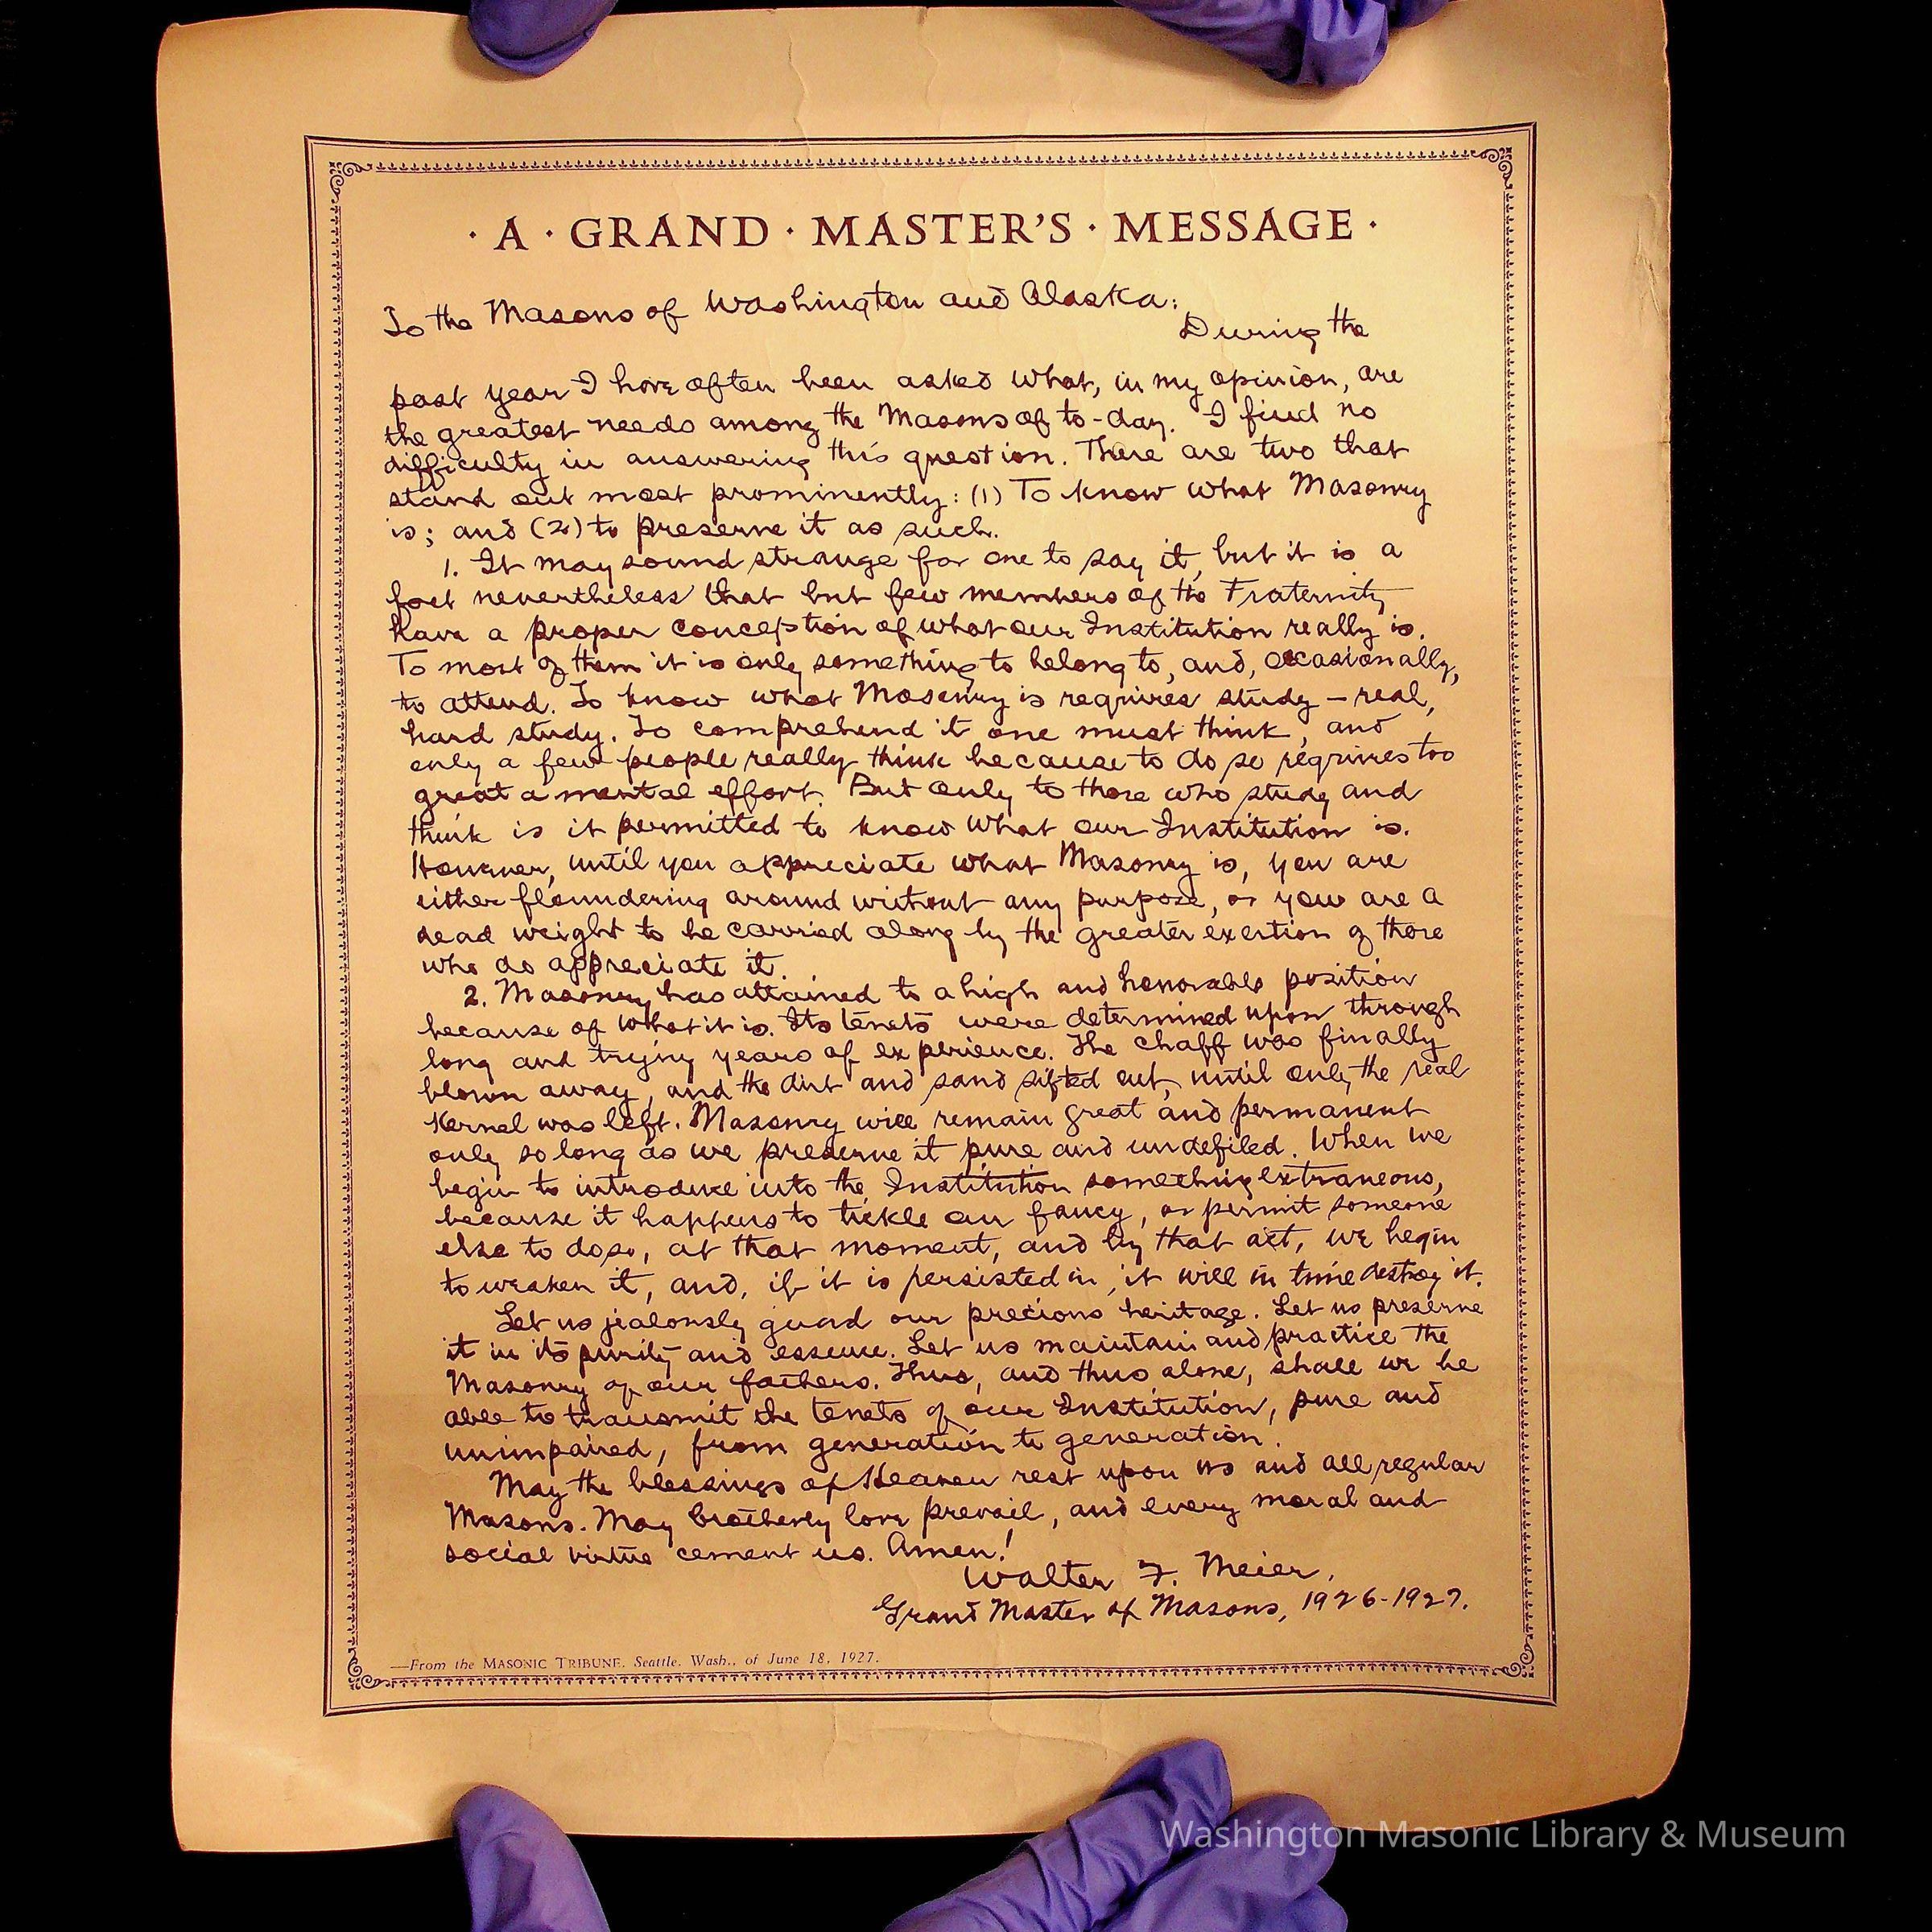 · A · GRAND · MASTER'S · MESSAGE ·
To the Masons of Washington and Alaska:
During the
past year I have often been asked what, in my opinion, are
the greatest needs among the Masons of to-day. I find no
difficulty in answering this question. There are two that
stand out most prominently: (1) To know what Masonry
is; and (2) to preserve it as such.
1. It may sound strange for one to say it, but it is a
fact nevertheless that but few members of the Fraternity
have a proper conception of what our Institution really is.
To most of them it is only something to belong to, and, occasionally,
to attend. To know what Masonry is requires study — real,
hard study. To comprehend it one must think, and
only a few people really think because to do so requires too
great a mental effort. But only to those who study and
think is it permitted to know what our Institution is.
However, until you appreciate what Masonry is, you are
either floundering around without any purpose, or you are a
dead weight to be carried along by the greater exertion of those
who do appreciate it.
2. Masonry has attained to a high and honorable position
because of what it is. Its tenets were determined upon through
long and trying years of experience. The chaff was finally
blown away, and the dirt and sand sifted out, until only the real
kernel was left. Masonry will remain great and permanent
only so long as we preserve it pure and undefiled. When we
begin to introduce into the Institution something extraneous,
because it happens to tickle our fancy, or permit someone
else to do so, at that moment, and by that act, we begin
to weaken it, and, if it is persisted in, it will in time destroy it.
Let us jealously guard our precious heritage. Let us preserve
it in its purity and essence. Let us maintain and practice the
Masonry of our fathers. Thus, and thus alone, shall we be
able to transmit the tenets of our Institution, pure and
unimpaired, from generation to generation.
May the blessings of Heaven rest upon us and all regular
Masons. May brotherly love prevail, and every moral and
social virtue cement us. Amen!
Walter F. Meier,
Grand Master of Masons, 1926-1927.
—From the MASONIC TRIBUNE, Seattle, Wash., of June 18, 1927.
Washington Masonic Library & Museum